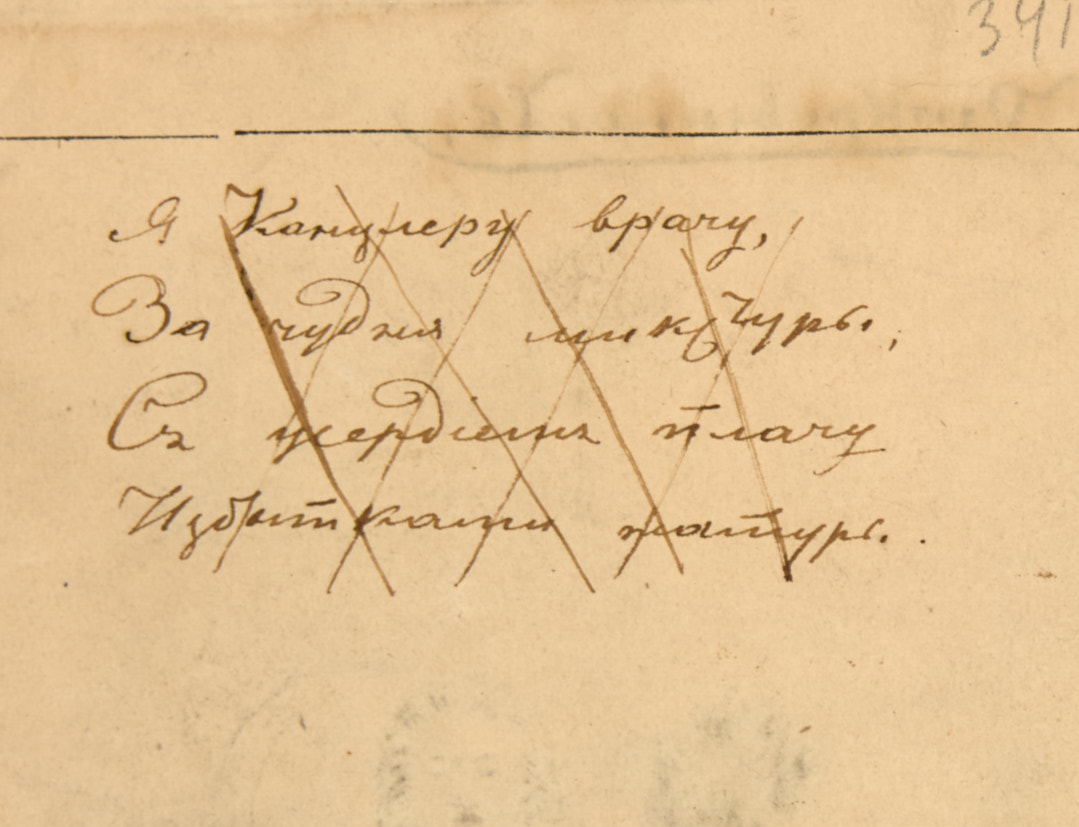 341
Я Канцлеру врачу,
За чудныя микстуры,
Съ усердіемъ плачу
Избытками натуры.